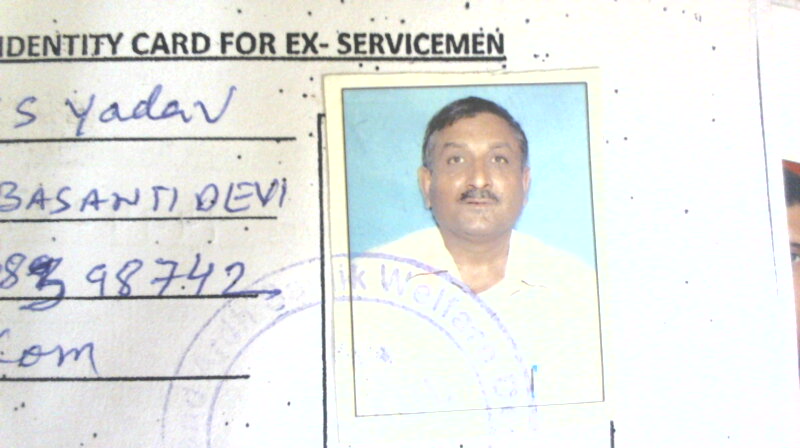 IDENTITY CARD FOR EX- SERVICEMEN
S Yadav
BASANTI DEVI
98742
com
Welfare